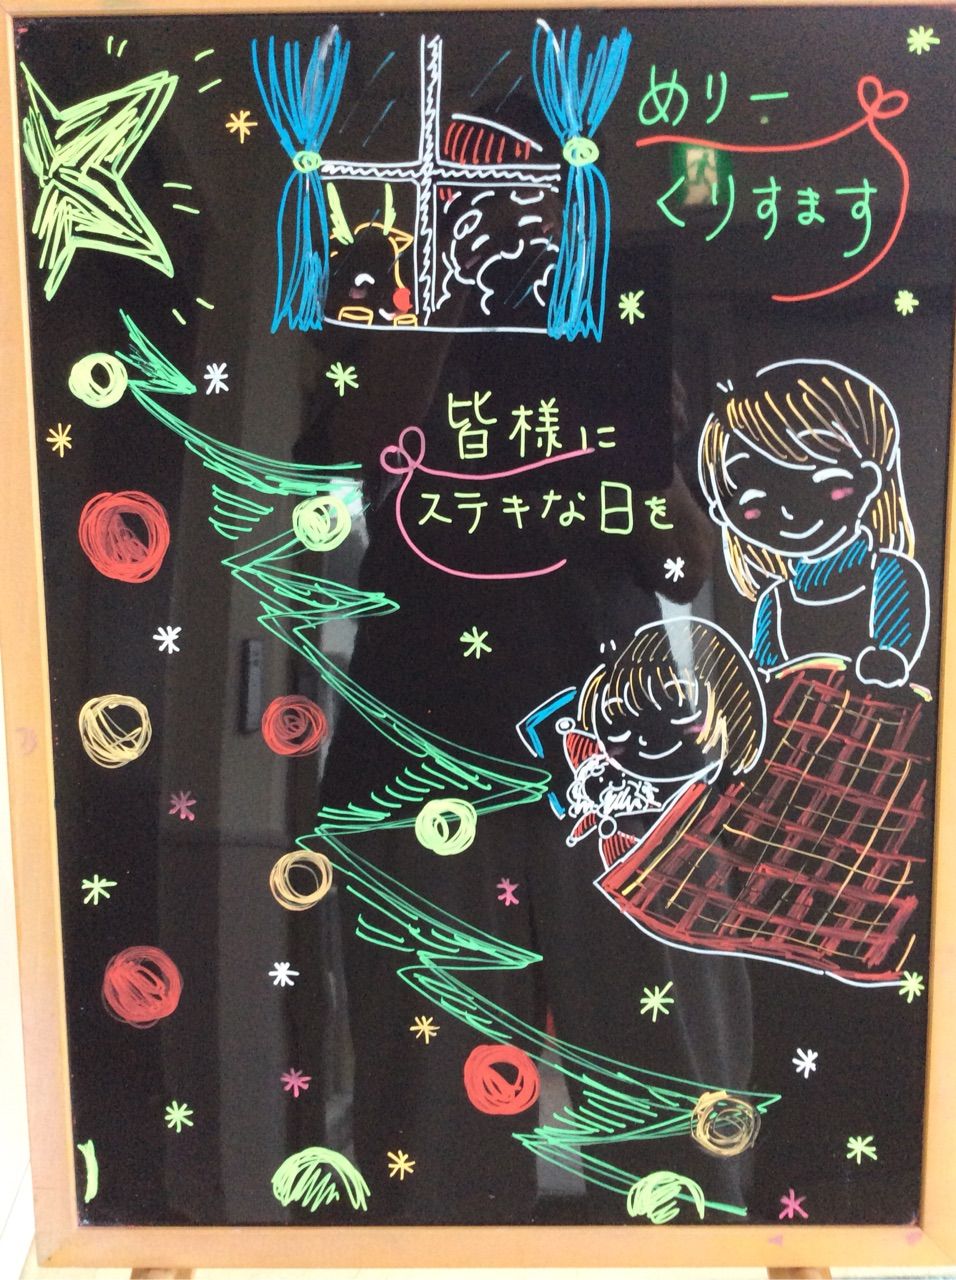 めりー
くりすます
皆様に
ステキな日を